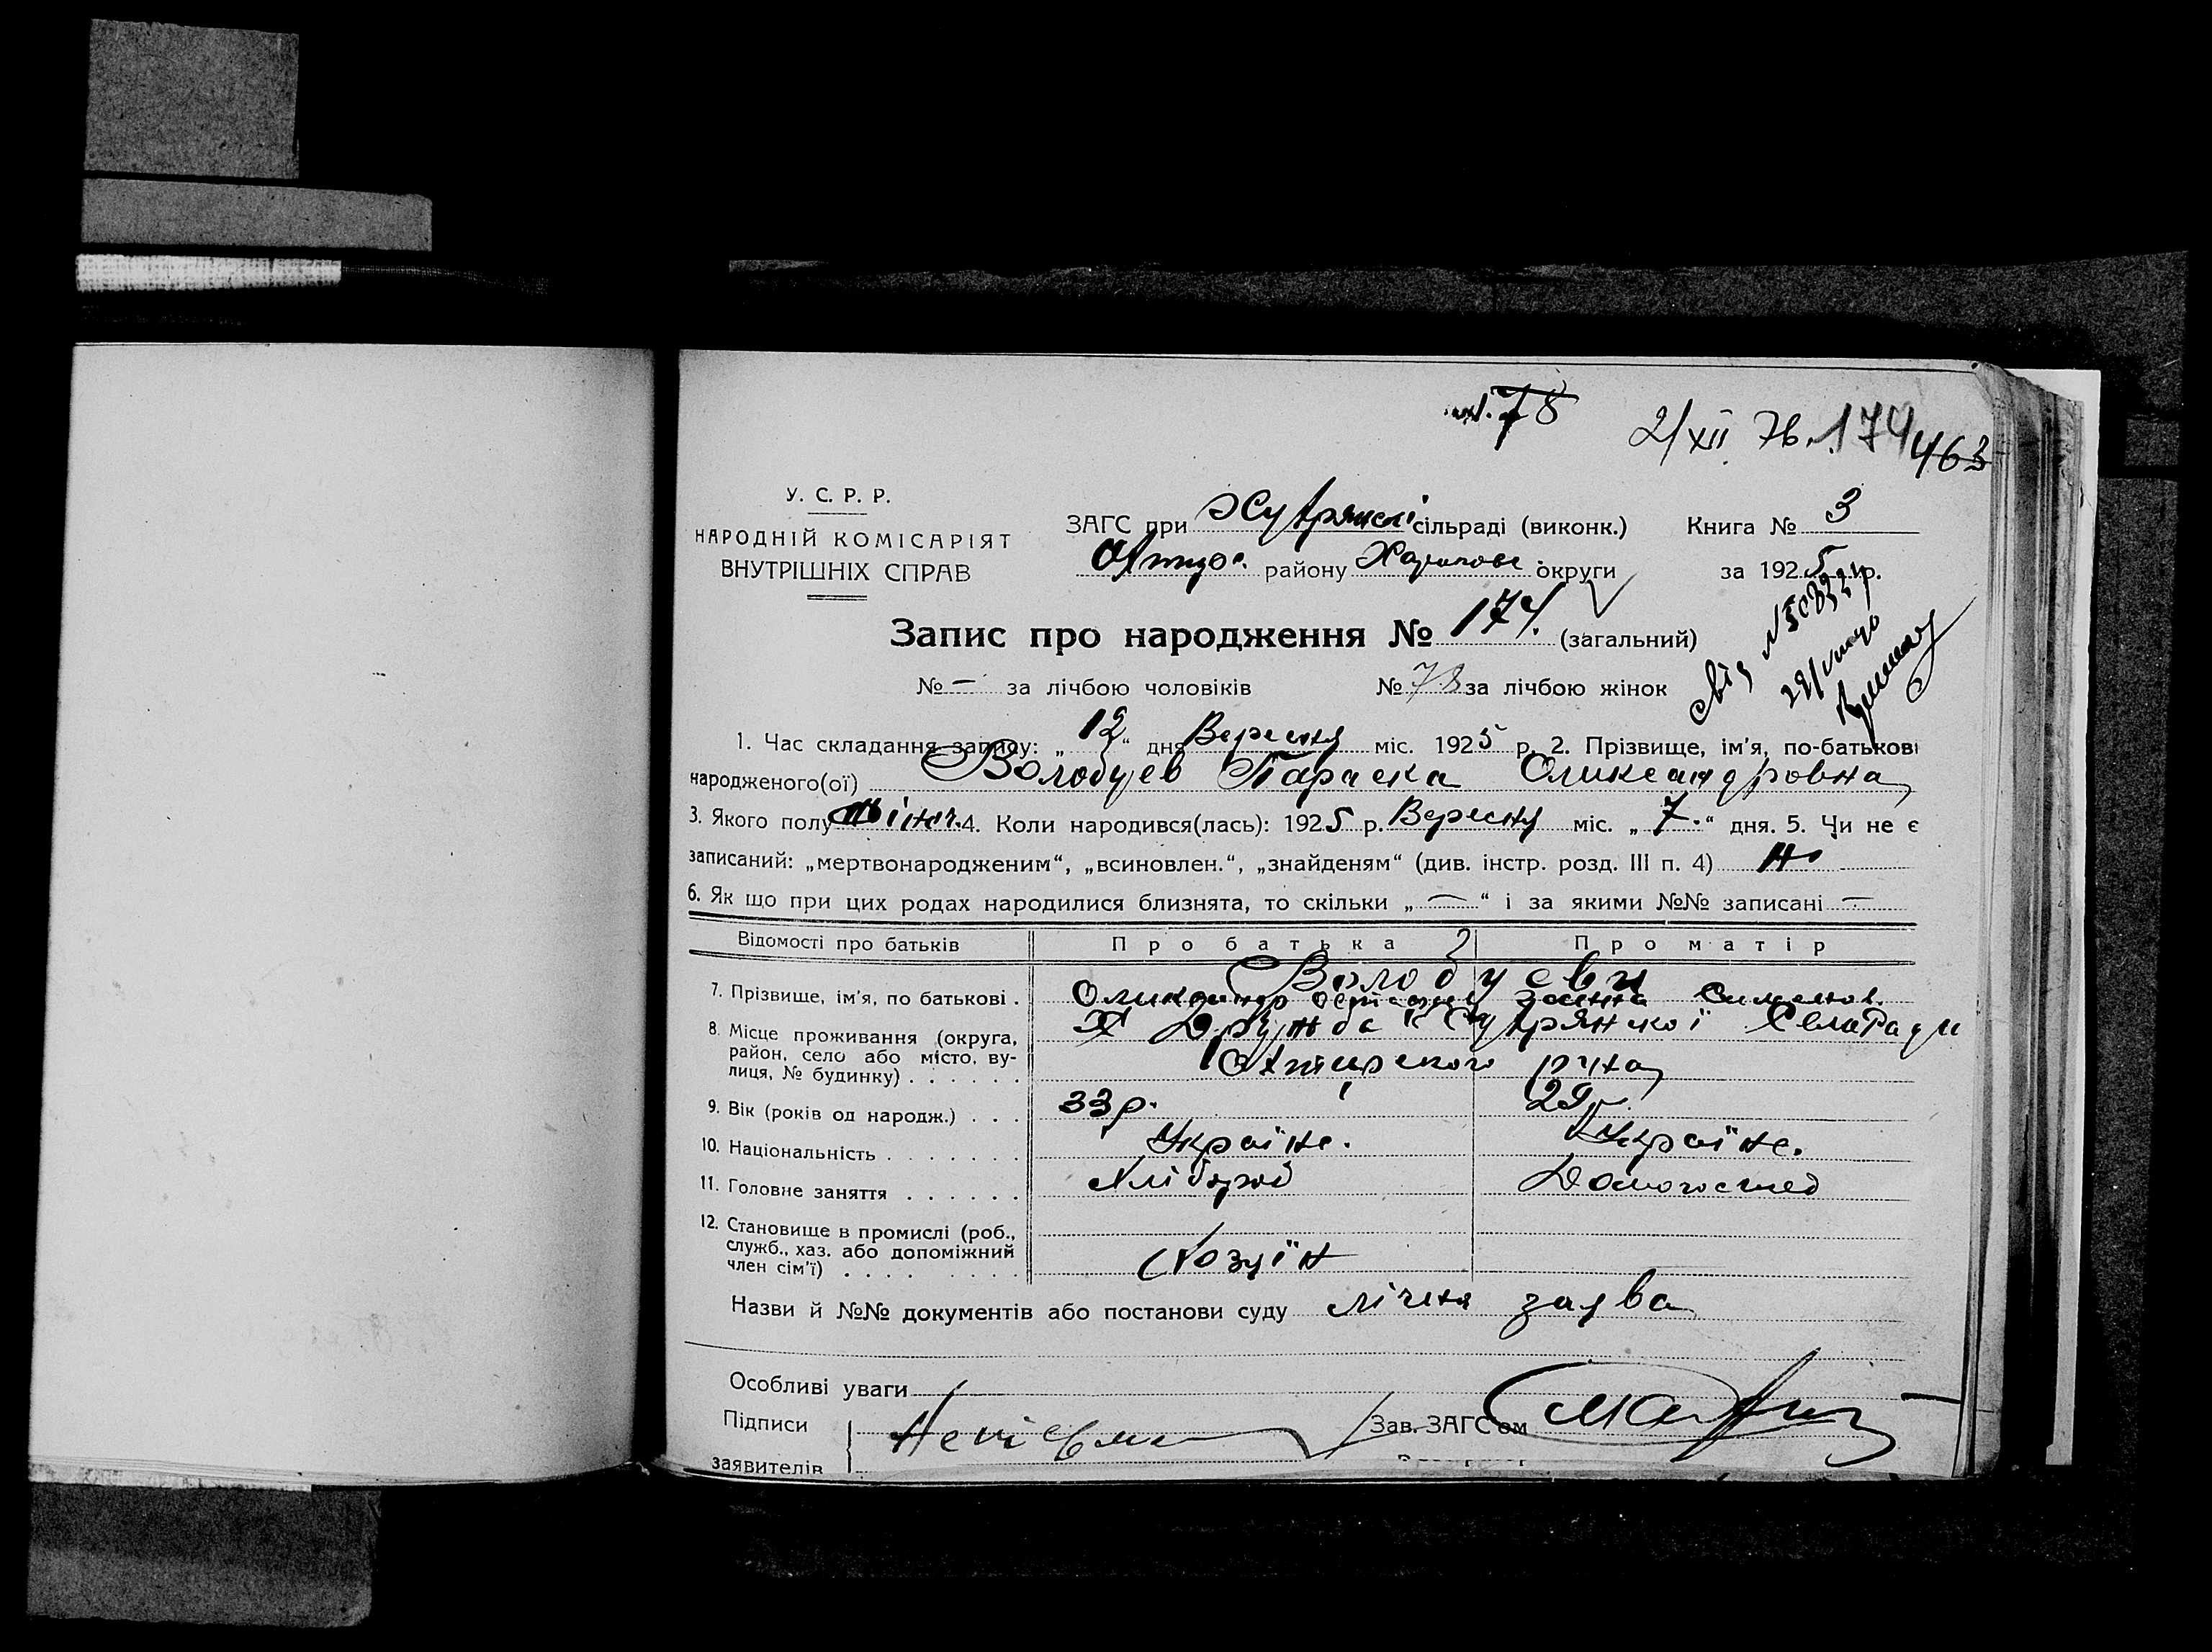 78
2/XII 76. 174 463
У. С. Р. Р.
НАРОДНІЙ КОМІСАРІЯТ
ВНУТРІШНІХ СПРАВ
ЗАГС при сільраді (виконк.) Книга № 3
району округи за 1925 р.
Запис про народження № 174. (загальний)
№ — за лічбою чоловіків № 78 за лічбою жінок
1. Час складання запису: „ 12 “ дня Вересня міс. 1925 р. 2. Прізвище, ім'я, по-батькові
народженого(ої) Волобуєв Параска Олександровна
3. Якого полу жіноч. 4. Коли народився(лась): 1925 р. Вересня міс. „ 7. “ дня. 5. Чи не є
записаний: „мертвонародженим“, „всиновлен.“, „знайденям“ (див. інстр. розд. III п. 4) Ні
6. Як що при цих родах народилися близнята, то скільки „ — “ і за якими №№ записані —
Відомості про батьків Про батька Про матір
Волобуєви
7. Прізвище, ім'я, по батькові .
8. Місце проживання (округа, Х Дружба Хутрянскої
район, село або місто, ву-
лиця, № будинку) . . . . . . Охтирского р-на
9. Вік (років од народж.) . . . 33 р. 29 р.
10. Національність . . . . . . . Україне. Україне.
11. Головне заняття . . . . . . Хлібороб Домогоспод
12. Становище в промислі (роб.,
служб., хаз. або допоміжний
член сім'ї) . . . . . . . . Хозяїн
Назви й №№ документів або постанови суду лічня заява
Особливі уваги
Підписи Зав. ЗАГС'ом
заявителів